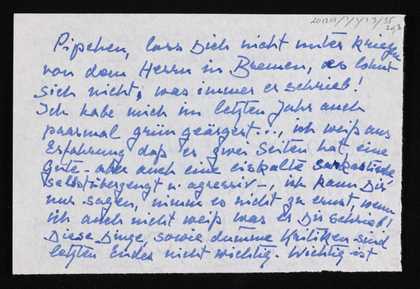 Pipchen, lass Dich nicht unter kriegen
von dem Herrn in Bremen, es lohnt
sich nicht, was immer er schrieb!
Ich habe mich im letzten Jahr auch
paarmal grün geärgert..., ich weiß aus
Erfahrung daß er zwei Seiten hat eine
Gute - aber auch eine eiskalte sarkastische
selbstüberzeugt u. agressiv -, ich kann Dir
nur sagen, nimm es nicht zu ernst, wenn
ich auch nicht weiß was er Dir schrieb!
Diese Dinge, sowie dumme Kritiken sind
letzten Endes nicht wichtig. Wichtig ist